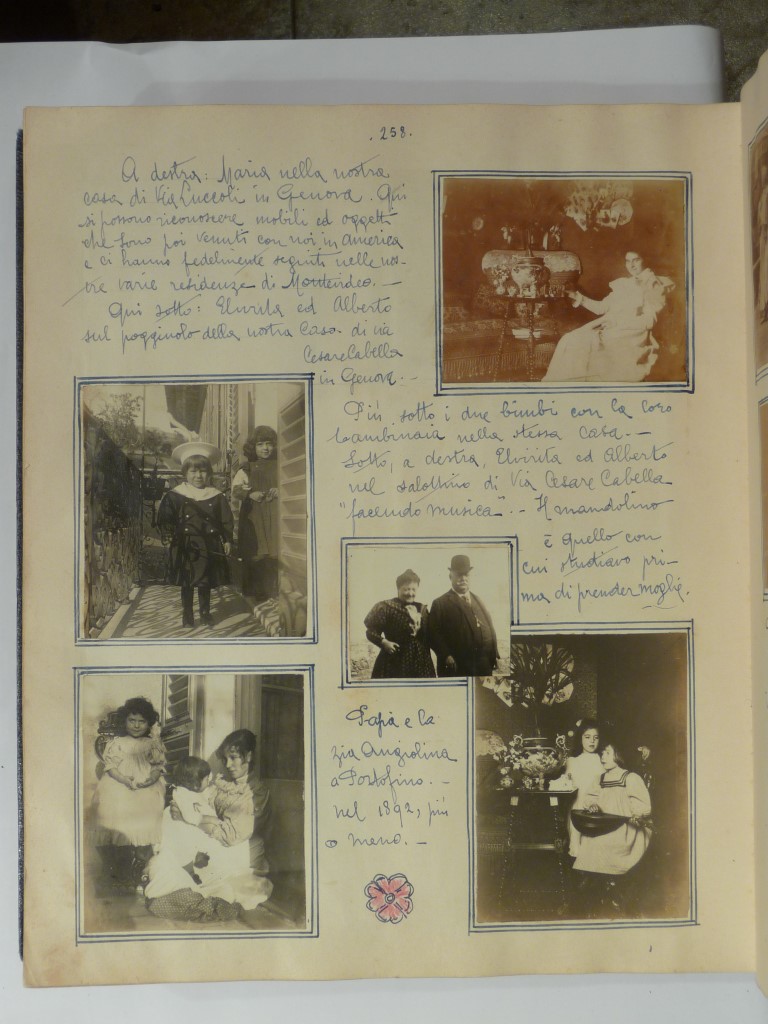 . 258.
A destra: Maria nella nostra
casa di Via Luccoli in Genova. Qui
si possono riconoscere mobili ed oggetti
che sono poi venuti con noi in America
e ci hanno fedelmente seguiti nelle nos-
tre varie residenze di Montevideo. —
Qui sotto: Elvirita ed Alberto
sul poggiuolo della nostra casa di via
Cesare Cabella
in Genova. —
Più sotto i due bimbi con la loro
bambinaia nella stessa casa. —
Sotto, a destra, Elvirita ed Alberto
nel salottino di Via Cesare Cabella
"facendo musica". — Il mandolino
è quello con
cui studiavo pri-
ma di prender moglie.
Papà e la
zia Angiolina
a Portofino. —
nel 1892, più
o meno. —